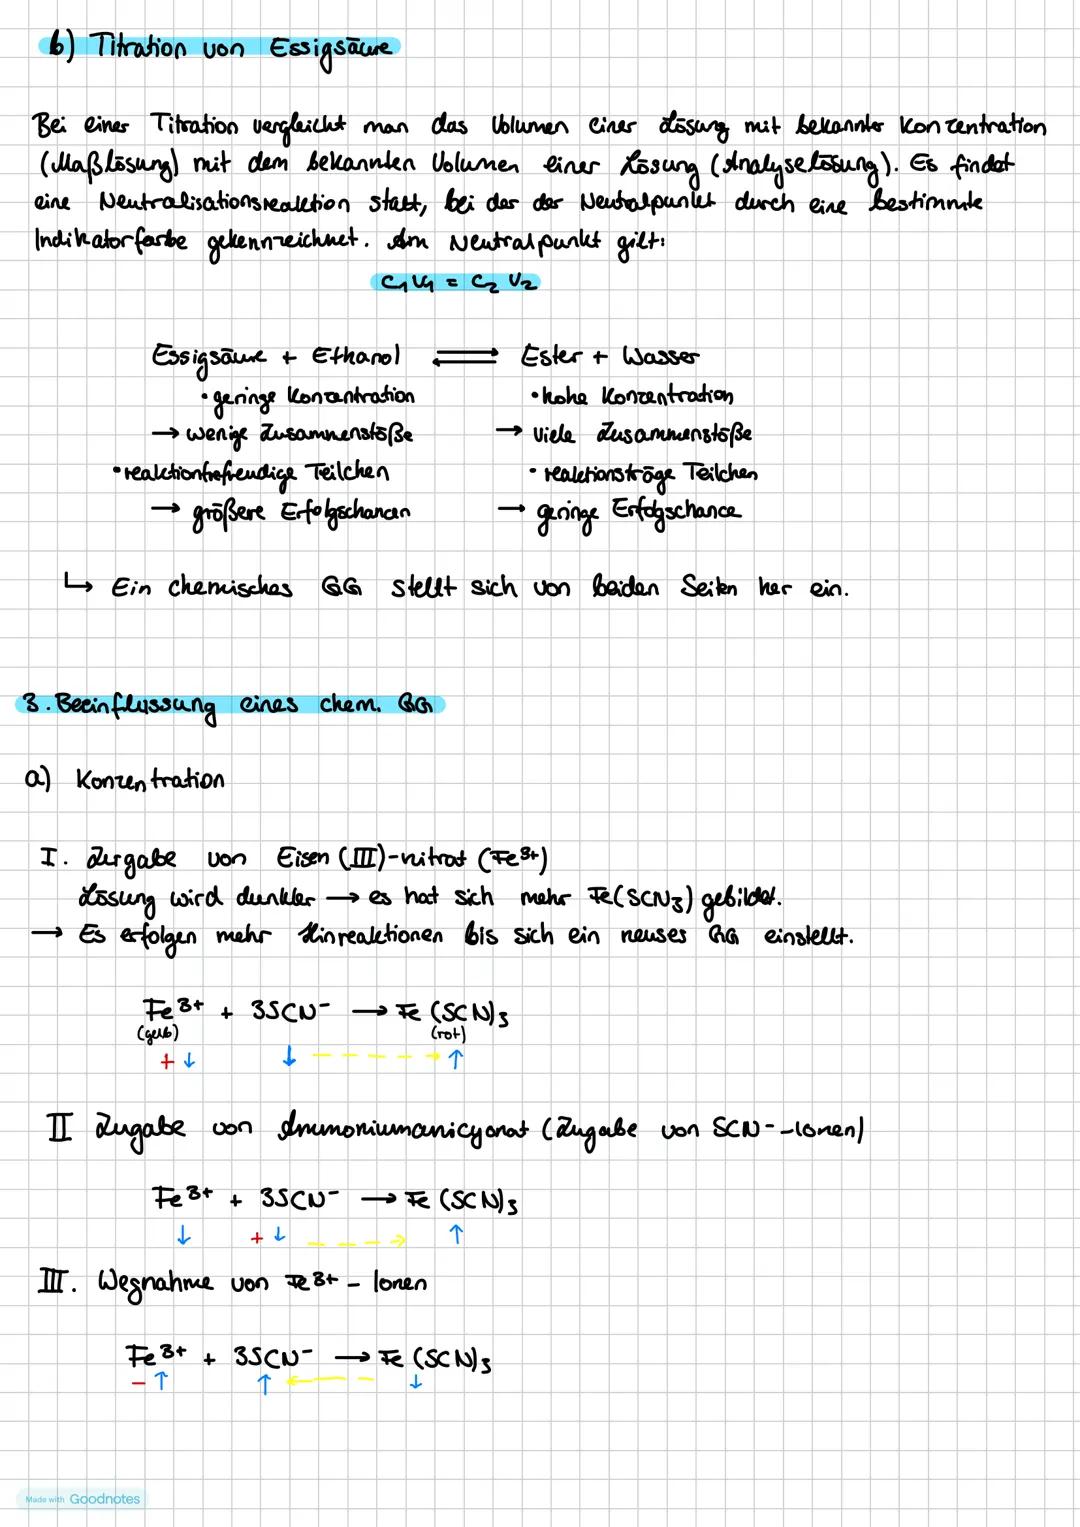 b) Titration von Essigsäure
Bei einer Titration vergleicht man das Volumen einer Lösung mit bekannter Konzentration
(Maßlösung) mit dem bekannten Volumen einer Lösung (Analyselösung). Es findet
eine Neutralisationsreaktion statt, bei der der Neutralpunkt durch eine bestimmte
Indikatorfarbe gekennzeichnet. Am Neutralpunkt gilt:
C₁V₁ = C₂ V₂
Essigsäure + Ethanol ⇌ Ester + Wasser
• geringe Konzentration • hohe Konzentration
→ wenige Zusammenstöße → viele Zusammenstöße
• reaktionfrefreudige Teilchen • reaktionsträge Teilchen
→ größere Erfolgschancen → geringe Erfolgschance
↳ Ein chemisches GG stellt sich von beiden Seiten her ein.
3. Beeinflussung eines chem. GG
a) Konzentration
I. Zugabe von Eisen (III)-nitrat (Fe³⁺)
Lösung wird dunkler → es hat sich mehr Fe(SCN₃) gebildet.
→ Es erfolgen mehr Hinreaktionen bis sich ein neues GG einstellt.
Fe³⁺ + 3SCN⁻ → Fe (SCN)₃
(gelb) (rot)
+ ↓ ↓ → ↑
II Zugabe von Ammoniumanicyonat (Zugabe von SCN⁻-Ionen)
Fe³⁺ + 3SCN⁻ → Fe (SCN)₃
↓ + ↓ → ↑
III. Wegnahme von Fe³⁺ - Ionen
Fe³⁺ + 3SCN⁻ → Fe (SCN)₃
- ↑ ↑ ← ↓
Made with Goodnotes